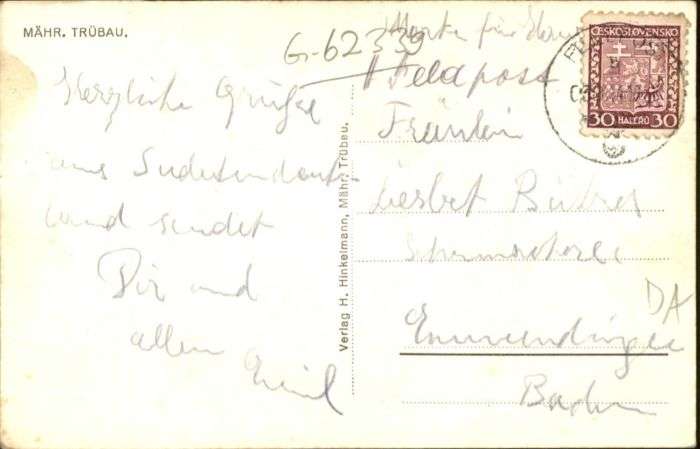 MÄHR. TRÜBAU.
G-62339
Herzliche Grüße
aus Sudetendeutsch-
land sendet
Dir und
allen Emil
Verlag H. Hinkelmann, Mähr. Trübau.
Marke für
Feldpost
Fräulein
Liesbet
Emmendingen
Baden
DA
ČESKOSLOVENSKO
30 HALÉŘŮ 30